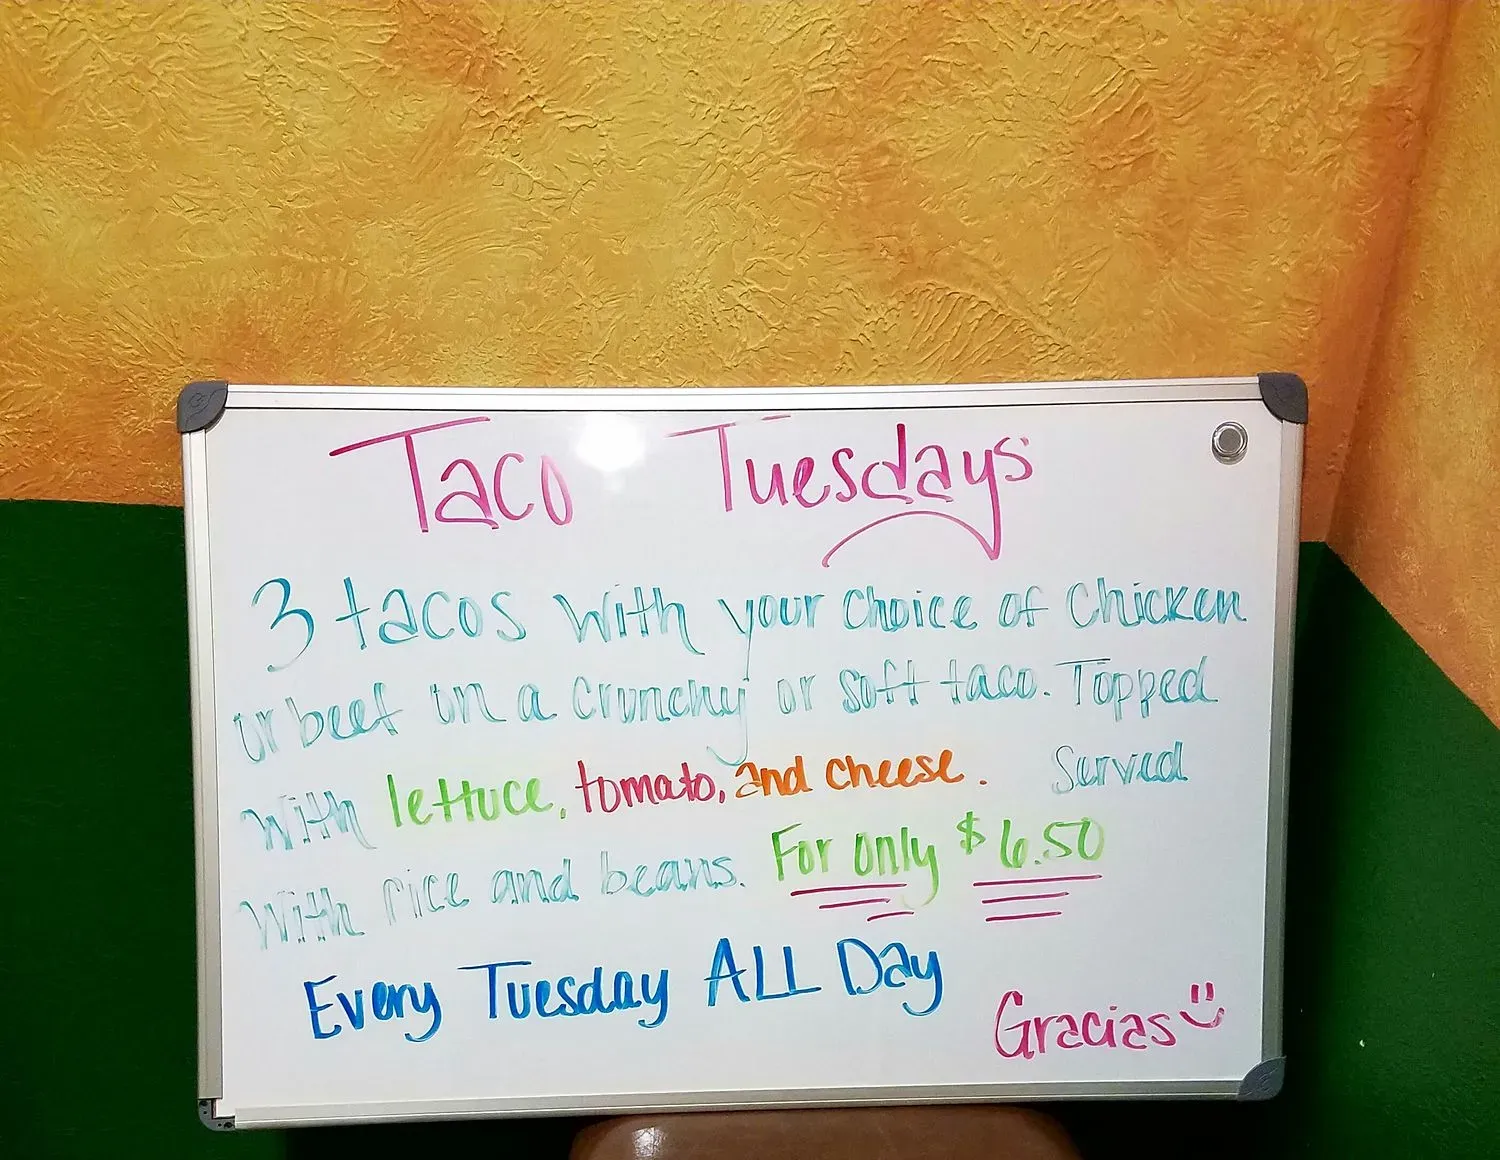 Taco Tuesdays
3 tacos with your choice of chicken
or beef on a crunchy or soft taco. Topped
with lettuce, tomato, and cheese. Served
with rice and beans. For only $6.50
Every Tuesday ALL Day
Gracias